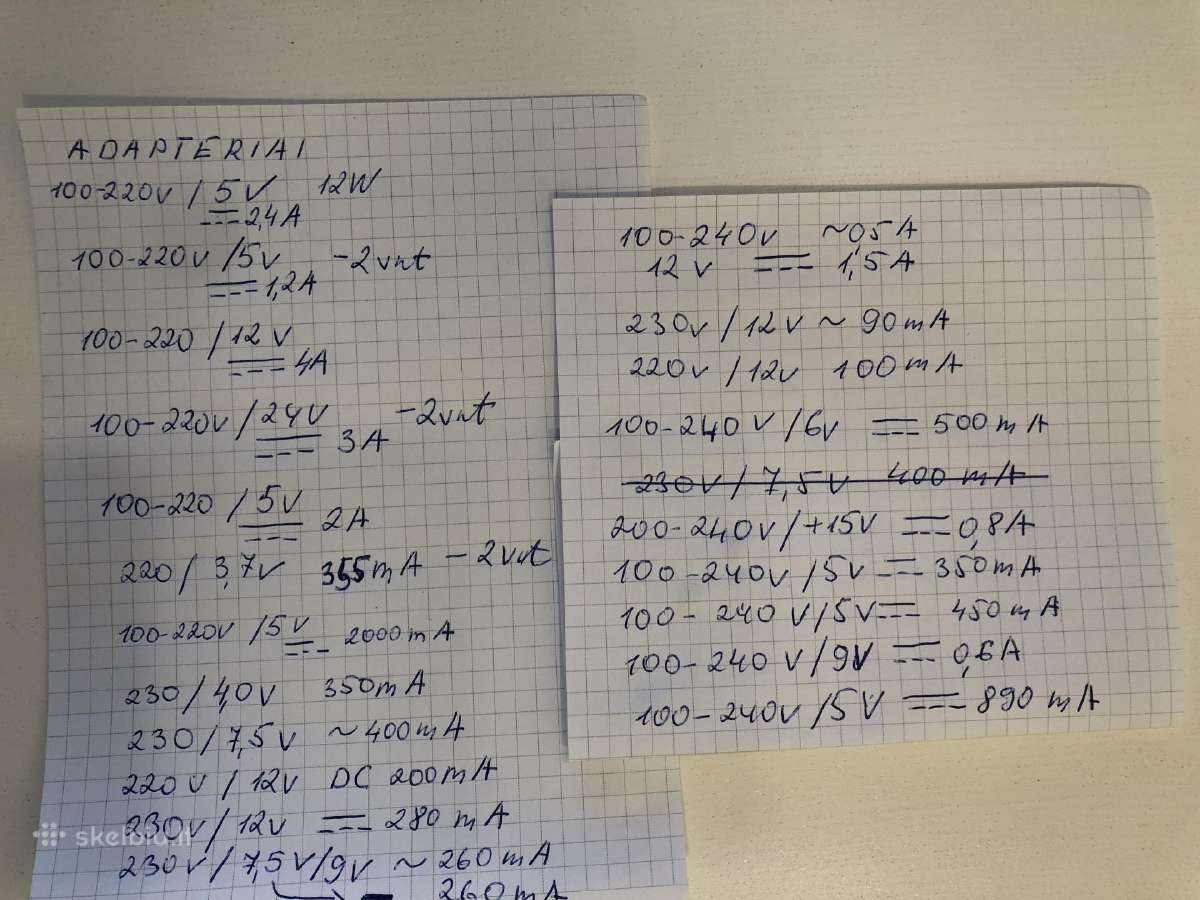 ADAPTERIAI
100-220V / 5V 12W
⎓ 2,4A
100-220V / 5V -2vnt
⎓ 1,2A
100-220 / 12V
⎓ 4A
100-220V / 24V -2vnt
⎓ 3A
100-220 / 5V
⎓ 2A
220 / 3,7V 355mA - 2vnt
100-220V / 5V ⎓ 2000mA
230 / 4,0V 350mA
230 / 7,5V ~400mA
220V / 12V DC 200mA
230V / 12V ⎓ 280 mA
230V / 7,5V/9V ~ 260mA
260mA
skelbiu.lt
100-240V ~05A
12V ⎓ 1,5A
230V / 12V ~ 90mA
220V / 12V 100mA
100-240V / 6V ⎓ 500mA
230V / 7,5V 400mA
200-240V / +15V ⎓ 0,8A
100-240V / 5V ⎓ 350mA
100-240V / 5V ⎓ 450mA
100-240V / 9V ⎓ 0,6A
100-240V / 5V ⎓ 890mA